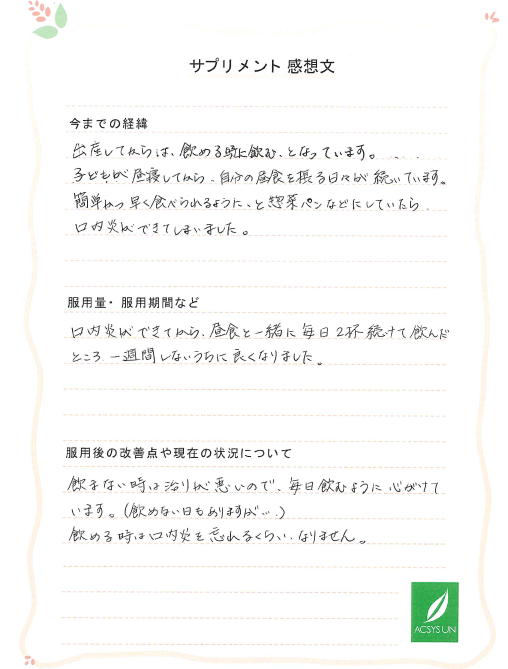 サプリメント 感想文
今までの経緯
出産してからは、飲める時に飲む、となっています。
子どもが昼寝してから、自分の昼食を摂る日々が続いています。
簡単かつ早く食べられるように、と惣菜パンなどにしていたら、
口内炎ができてしまいました。
服用量・服用期間など
口内炎ができてから、昼食と一緒に毎日2杯続けて飲んだ
ところ、一週間しないうちに良くなりました。
服用後の改善点や現在の状況について
飲まない時は治りが悪いので、毎日飲むように心がけて
います。(飲めない日もありますが…)
飲める時は口内炎を忘れるくらい、なりません。
ACSYSUN